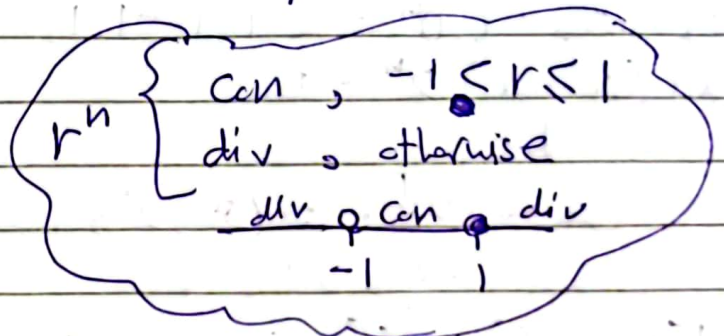 con , -1 < r ≤ 1
r^n {
div , otherwise
div con div
-1 1